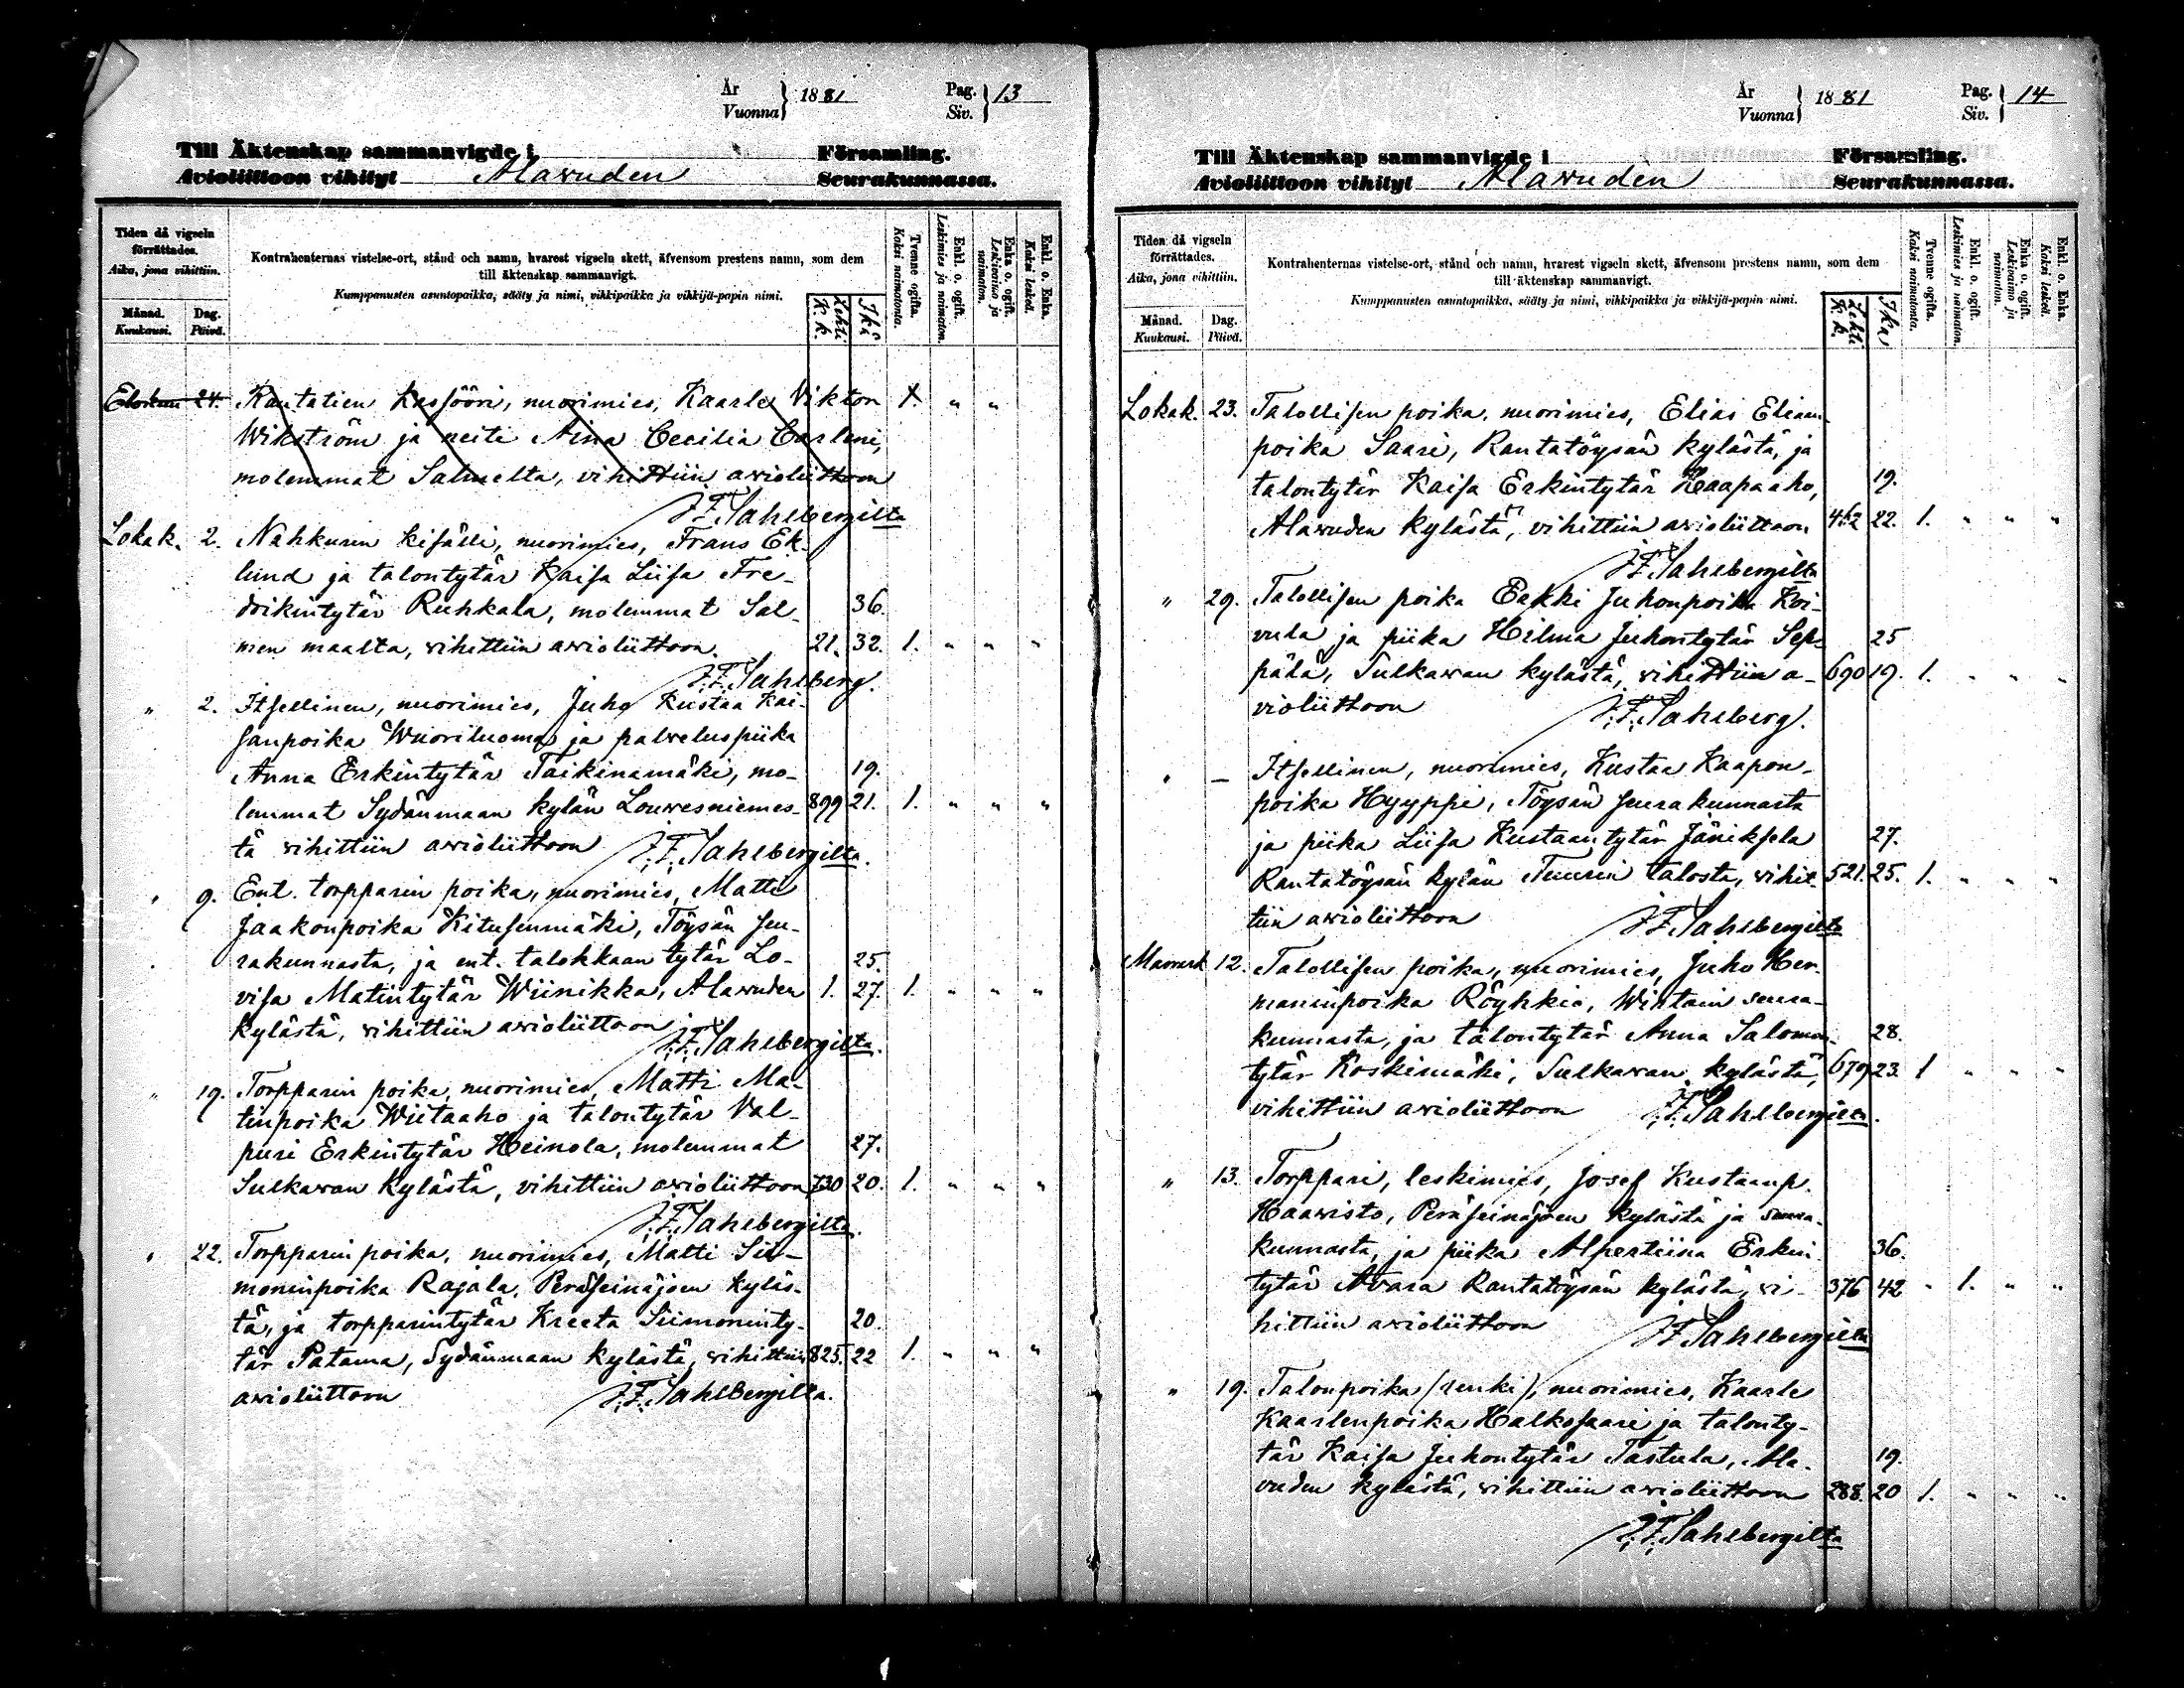 År
Vuonna } 1881
Pag.
Siv. } 13
Till Äktenskap sammanvigde i Församling.
Avioliittoon vihityt Alavuden Seurakunnassa.
Tiden då vigseln förrättades.
Aika, jona vihittiin.
Månad.
Kuukausi.
Dag.
Päivä.
Kontrahenternas vistelse-ort, stånd och namn, hvarest vigseln skett, äfvensom prestens namn, som dem
till äktenskap sammanvigt.
Kumppanusten asuntopaikka, sääty ja nimi, vihkipaikka ja vihkijä-papin nimi.
Lehti K. k.
Ikä
Tvenne ogifta.
Kaksi naimatonta.
Enkl. o. ogift.
Leskimies ja naimaton.
Enka o. ogift.
Leskivaimo ja naimaton.
Enkl. o. Enka.
Kaksi leskeä.
Elokuu 24. Rautatien kassööri, nuorimies, Kaarle Viktor X. " "
Wikström ja neiti Aina Cecilia Carleni,
molemmat Salmelta, vihittiin avioliittoon
J.F. Sahlbergilta
Lokak. 2. Nahkurin kisälli, nuorimies, Frans Ek-
lund ja talontytär Kaisa Liisa Fre-
drikintytär Ruhkala, molemmat Sal- 36.
men maalta, vihittiin avioliittoon. 21. 32. 1. " " "
J.F. Sahlberg.
" 2. Itsellinen, nuorimies, Juho Kustaa Kai-
sanpoika Wuoriluoma ja palveluspiika
Anna Erkintytär Taikinamäki, mo- 19.
lemmat Sydänmaan kylän Louvesniemes- 899 21. 1. " " "
tä vihittiin avioliittoon J.F. Sahlbergilta.
" 9. Ent. torpparin poika, nuorimies, Matti
Jaakonpoika Kitusenmäki, Töysän seu-
rakunnasta, ja ent. talokkaan tytär Lo- 25.
visa Matintytär Wiinikka, Alavuden 1. 27. 1. " " "
kylästä, vihittiin avioliittoon
J.F. Sahlbergilta.
" 19. Torpparin poika, nuorimies, Matti Ma-
tinpoika Wiitaaho ja talontytär Val-
puri Erkintytär Heinola, molemmat 27.
Sulkavan kylästä, vihittiin avioliittoon 730 20. 1. " " "
J.F. Sahlbergilta.
" 22. Torpparin poika, nuorimies, Matti Sii-
moninpoika Rajala, Peräseinäjoen kyläs-
tä, ja torpparintytär Kreeta Siimoninty- 20.
tär Patama, Sydänmaan kylästä, vihittiin 825. 22 1. " " "
avioliittoon J.F. Sahlbergilta.
År
Vuonna } 1881
Pag.
Siv. } 14
Till Äktenskap sammanvigde i Församling.
Avioliittoon vihityt Alavuden Seurakunnassa.
Tiden då vigseln förrättades.
Aika, jona vihittiin.
Månad.
Kuukausi.
Dag.
Päivä.
Kontrahenternas vistelse-ort, stånd och namn, hvarest vigseln skett, äfvensom prestens namn, som dem
till äktenskap sammanvigt.
Kumppanusten asuntopaikka, sääty ja nimi, vihkipaikka ja vihkijä-papin nimi.
Lehti K. k.
Ikä
Tvenne ogifta.
Kaksi naimatonta.
Enkl. o. ogift.
Leskimies ja naimaton.
Enka o. ogift.
Leskivaimo ja naimaton.
Enkl. o. Enka.
Kaksi leskeä.
Lokak. 23. Talollisen poika, nuorimies, Elias Elian-
poika Saari, Rantatöysän kylästä, ja
talontytär Kaisa Erkintytär Haapaaho, 19.
Alavuden kylästä, vihittiin avioliittoon 462 22. 1. " " "
J.F. Sahlbergilta
" 29. Talollisen poika Erkki Juhonpoika Koi-
vula ja piika Hilma Juhontytär Sep- 25
pälä, Sulkavan kylästä, vihittiin a- 690 19. 1. " " "
violiittoon J.F. Sahlberg.
" — Itsellinen, nuorimies, Kustaa Kaapon-
poika Hyyppi, Töysän seurakunnasta
ja piika Liisa Kustaantytär Jäniksela 27.
Rantatöysän kylän Tuurin talosta, vihit- 521. 25. 1. " " "
tiin avioliittoon J.F. Sahlbergilta
Marrask 12. Talollisen poika, nuorimies, Juho Her-
manninpoika Röyhkiö, Wirtain seura-
kunnasta, ja talontytär Anna Salomon- 28.
tytär Koskimäki, Sulkavan kylästä, 679 23. 1 " " "
vihittiin avioliittoon J.F. Sahlbergilta.
" 13. Torppari, leskimies, Josef Kustaanp.
Haavisto, Peräseinäjoen kylästä ja seura-
kunnasta, ja piika Alpertiina Erkin- 36.
tytär Avara Rantatöysän kylästä, vi- 376 42 " 1. " "
hittiin avioliittoon J.F. Sahlbergilta
" 19. Talonpoika (renki), nuorimies, Kaarle
Kaarlenpoika Halkosaari ja talonty-
tär Kaisa Juhontytär Tastula, Ala- 19.
vuden kylästä, vihittiin avioliittoon 288. 20 1. " " "
J.F. Sahlbergilta